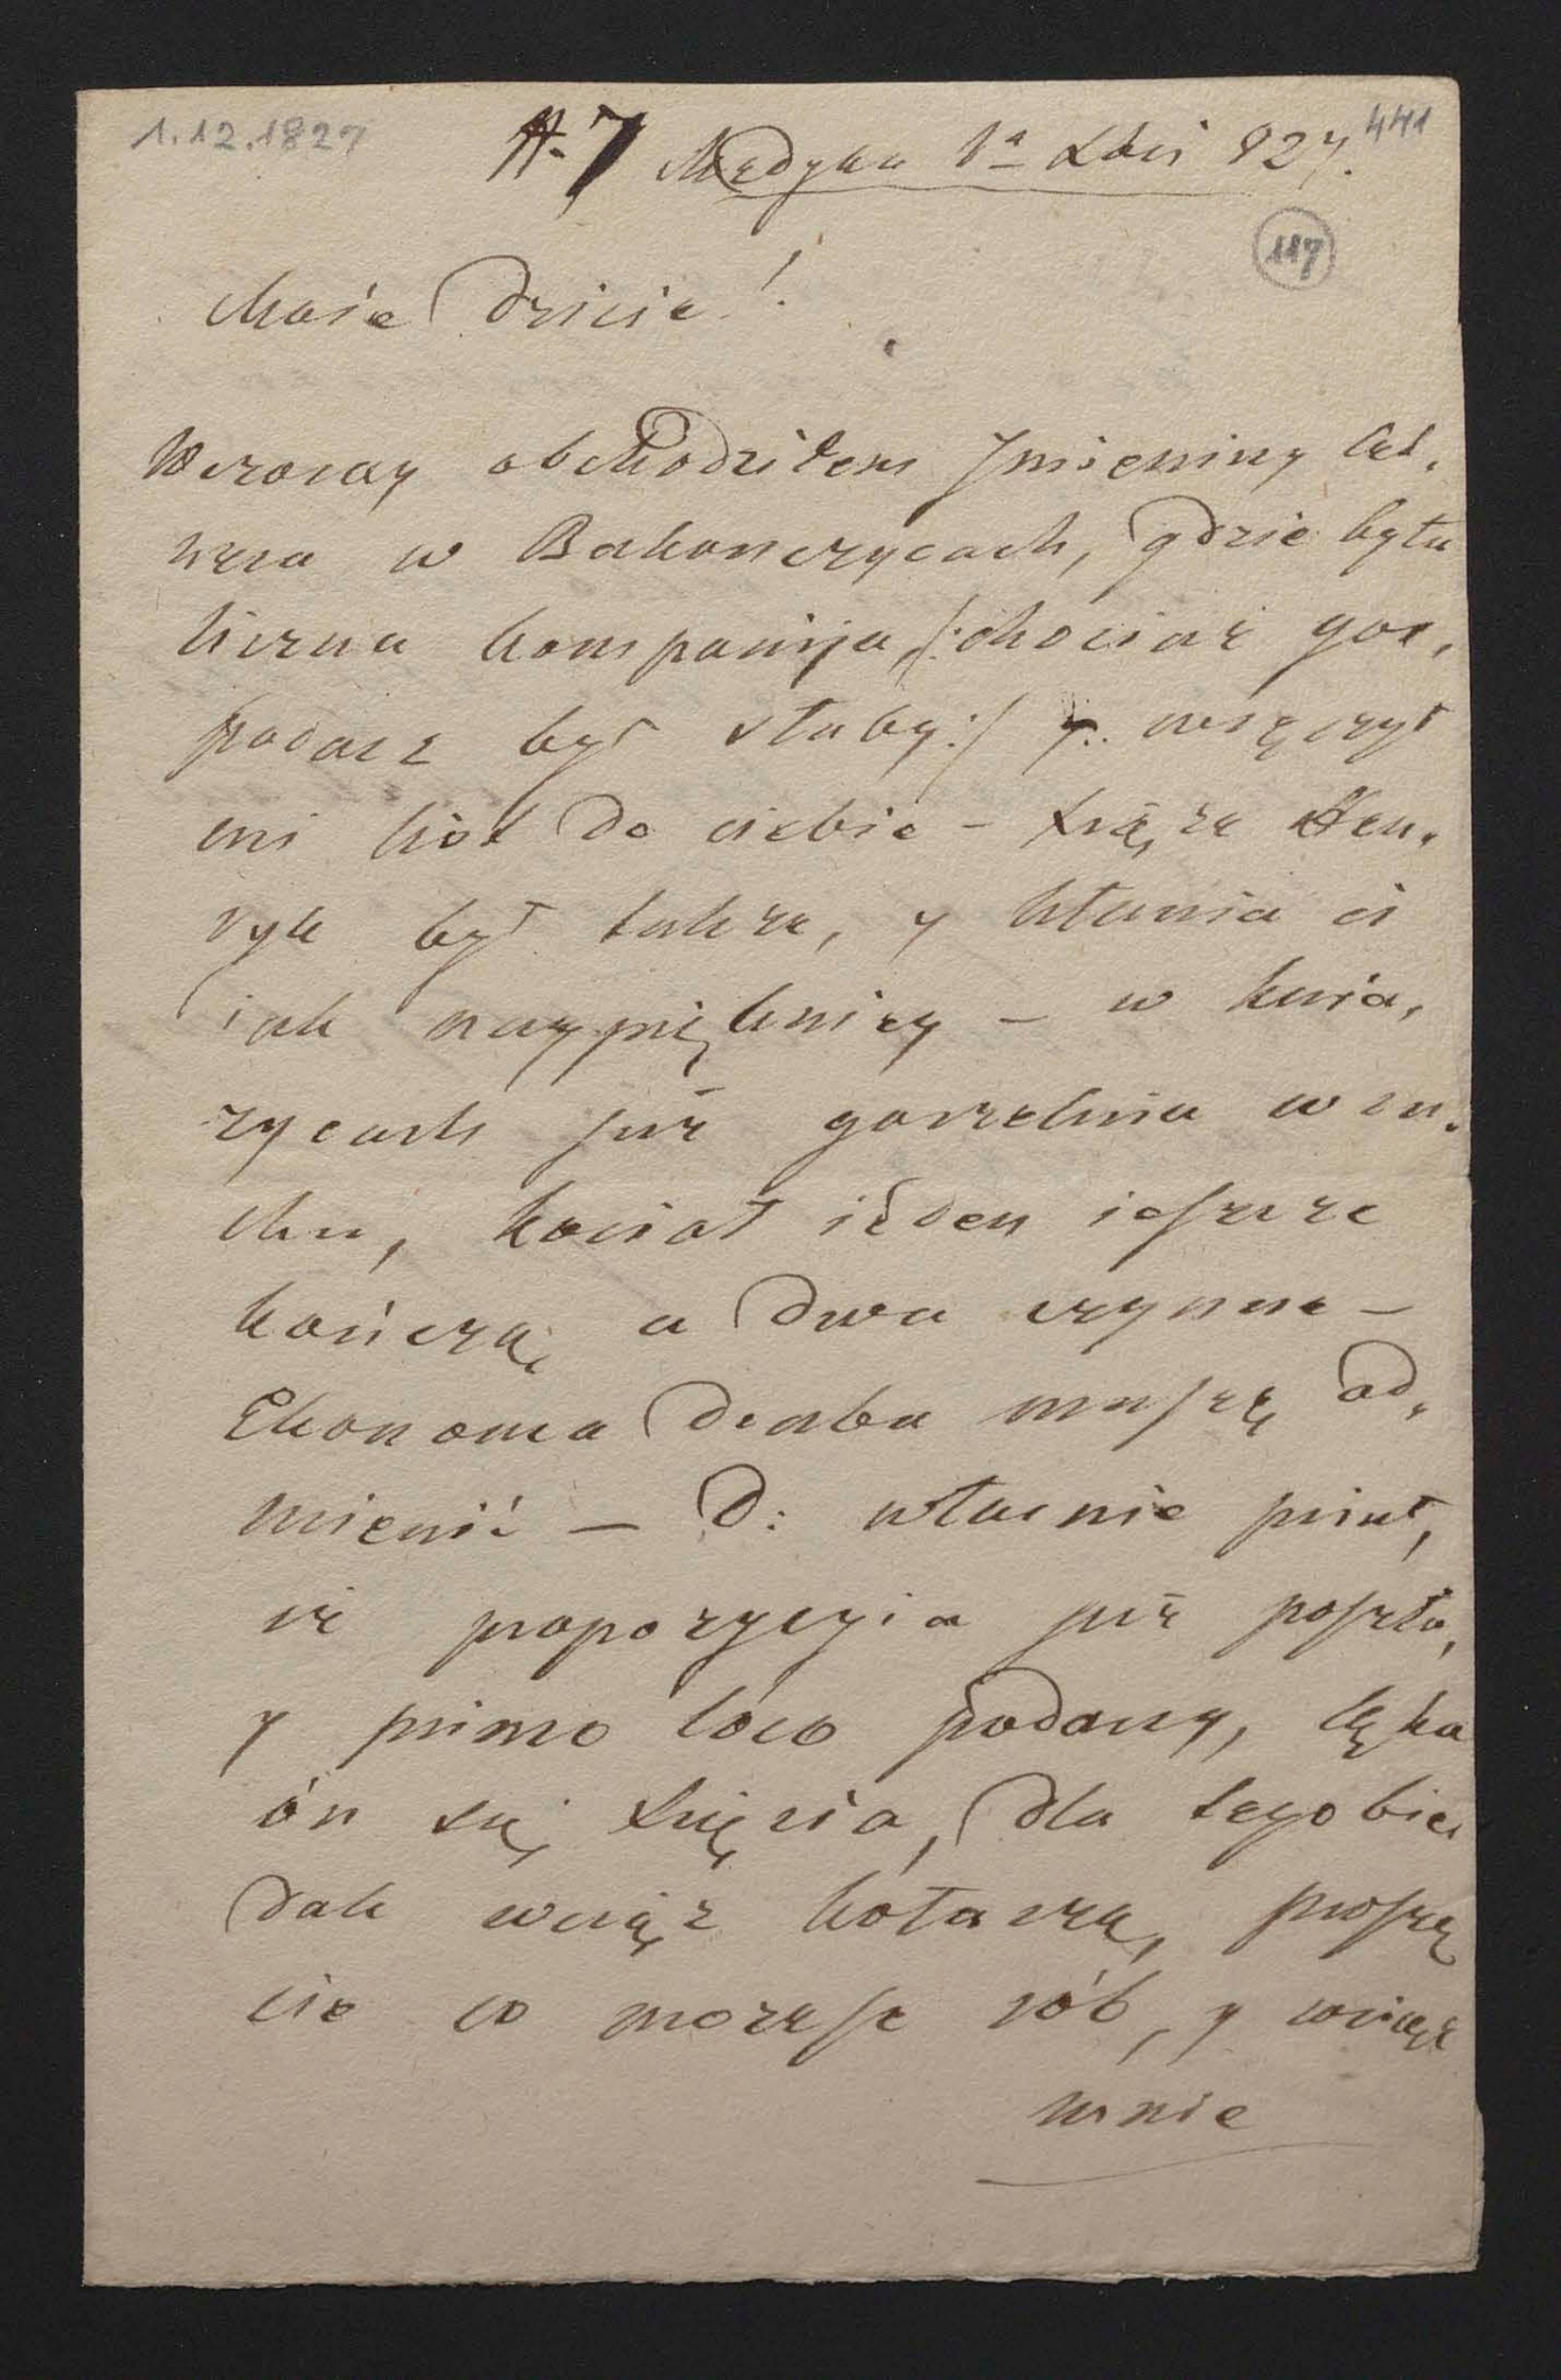 1.12.1827
№ 7 Medyka 1ª Xbris 827.
441
117
Moie Dziecie!
Wczoray obchodziłem Jmieniny
w Bakonczycach, gdzie była
liczna kompanija /:chociaż gos,
podarz był słaby:/ y wręczył
mi list do ciebie – Xiąże Hen,
ryk był takze, y kłania ci
iak naypiękniey – w knia,
zycach juz gorzelnia w ru,
chu, kocioł ieden ieszcze
kończą, a dwa czynne –
Ekonoma Demba muszę od,
mienić – D: własnie pisał,
iż propozycyia już poszła,
y primo loco podany, lęka
ón się Xięcia, dla tego bie,
dak wciąż kołacze, proszę
cie co mozesz rób, y wciąż
mnie